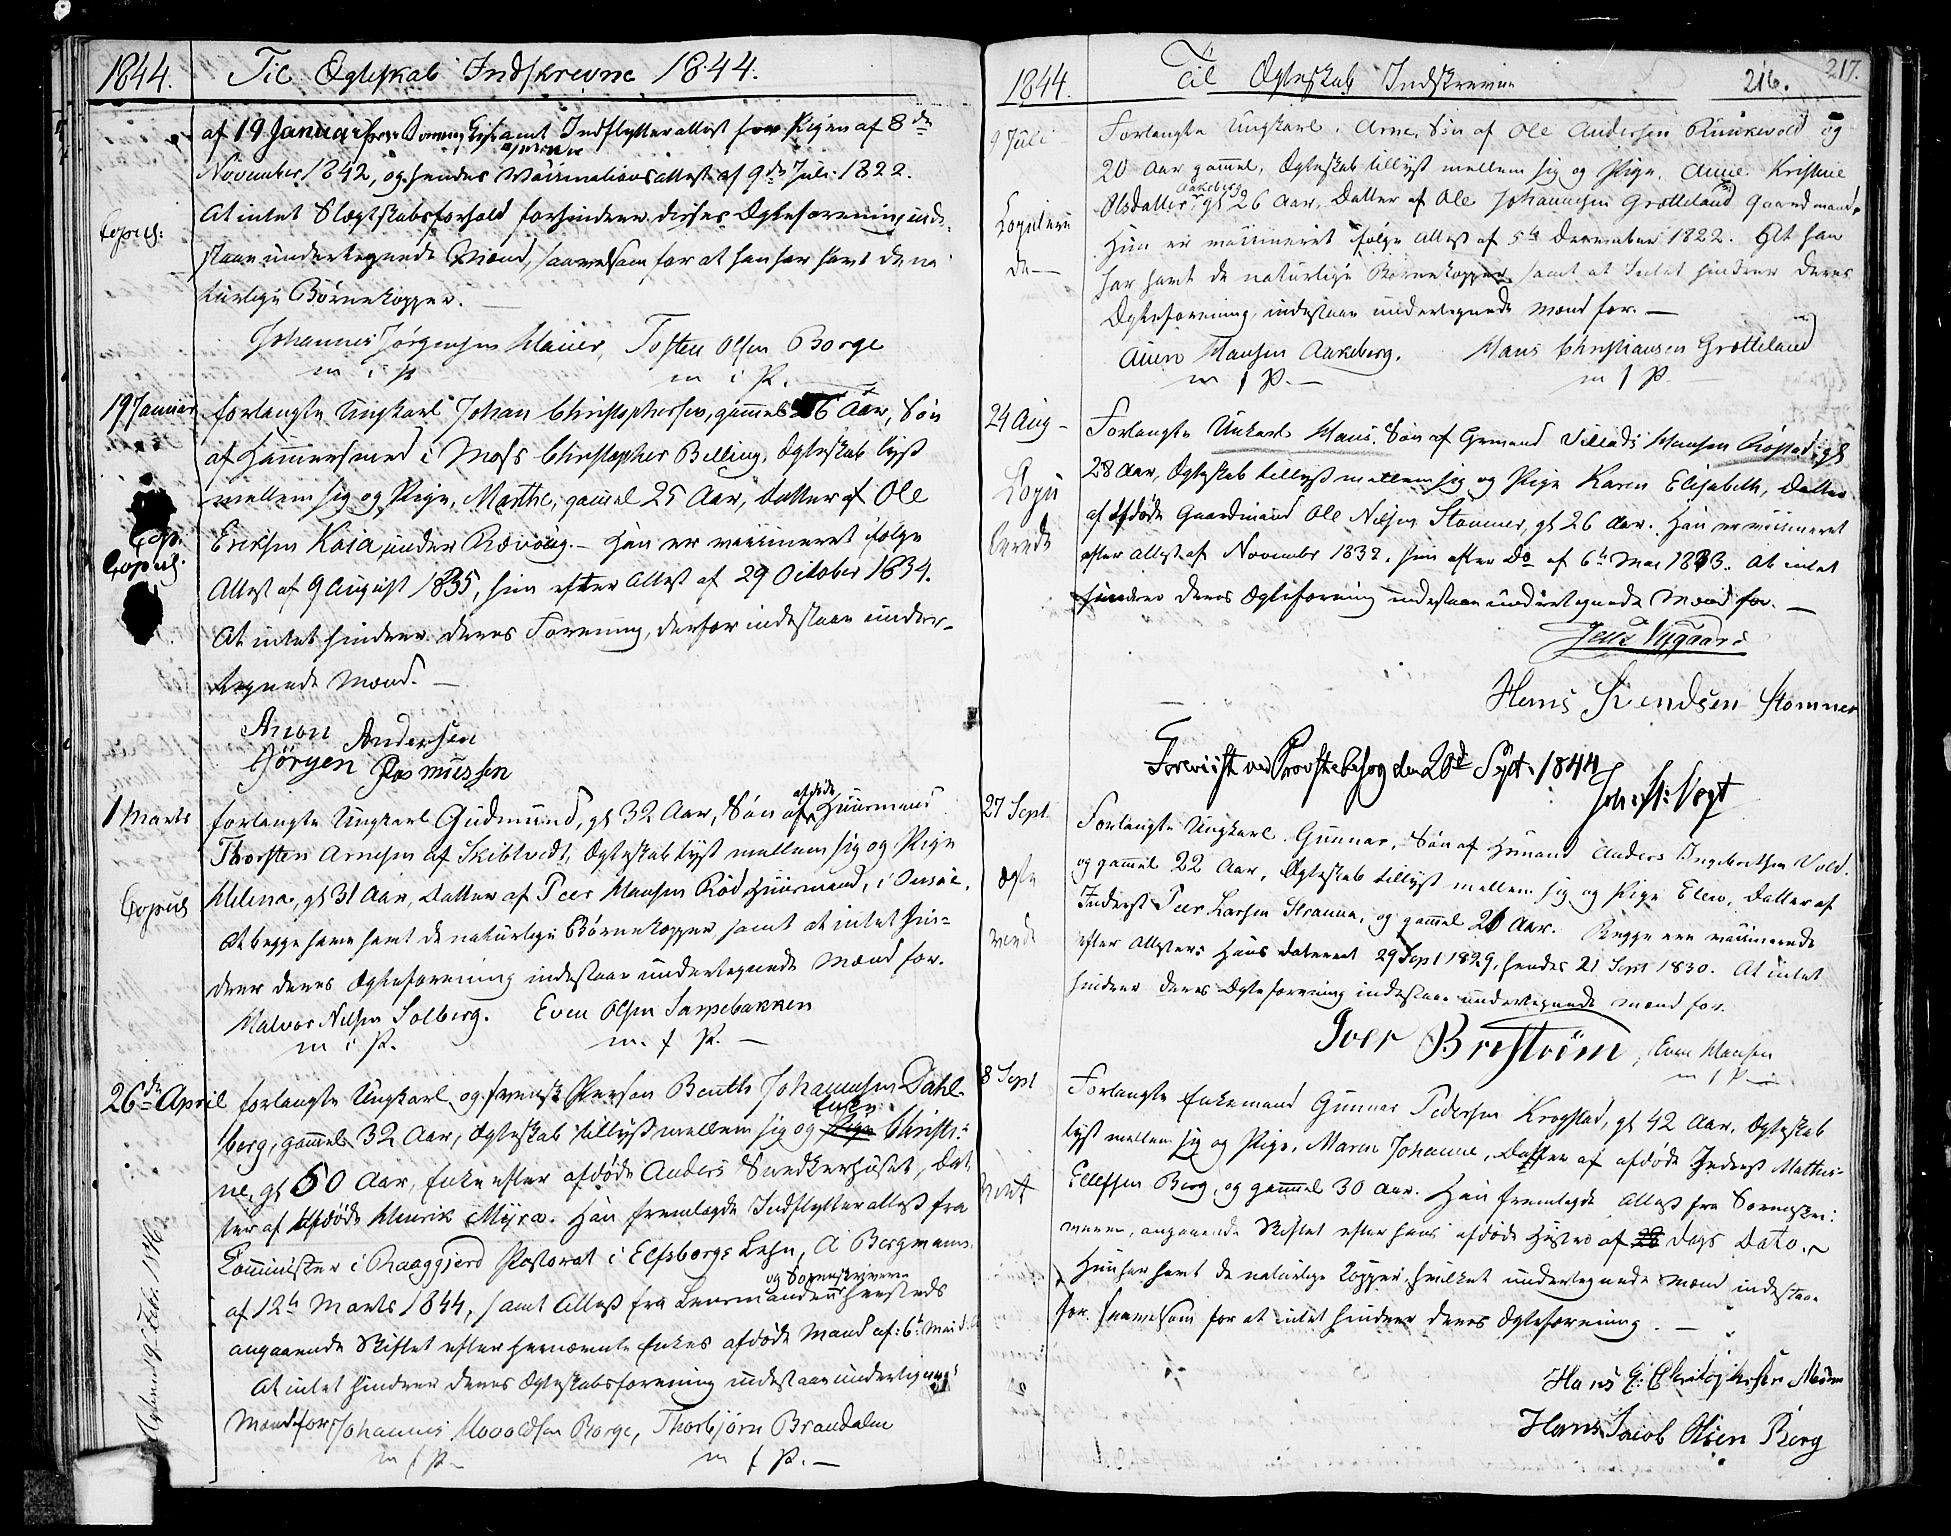 1844. Til Ægteskab Indskrevne 1844.
af 19 Januar samt Indflytterattest for Pigen af 8de
November 1842, og hendes Vaccinationsattest af 9de Juli 1822.
At intet Slægtskabsforhold forhindrer disses Ægteforening inde-
staae undertegnede Mænd, saavelsom for at han har havt de na-
turlige Børnekopper.
Copul:
Johannes Jørgensen Tosten Olsen Borge
m i P m i P.
19 Januar forlangte Ungkarl Johan Christophersen, gammel 26 Aar, Søn
af Hammersmed i Moss Christopher Belling, Ægteskab lyst
mellem sig og Pige, Marthe, gammel 25 Aar, Datter af Ole
Eriksen Kasa under - Han er vaccineret ifølge
Cop.
Copul:
Attest af 9 August 1835, hun efter Attest af 29 October 1834.
At intet hindrer deres Forening, derfor indestaae under-
tegnede Mænd. -
Anon Andersen
Jørgen Rasmussen
1 Marts forlangte Ungkarl Gudmund, gl 32 Aar, Søn af afdøde Huusmand
Thorsten Arnesen af Skibtvedt, Ægteskab lyst mellem sig og Pige
Helena, gl 31 Aar, Datter af Peer Hansen Rød, Huusmand, i Onsøe.
Copul
At begge have havt de naturlige Børnekopper samt at intet hin-
drer deres Ægteforening indestaae undertegnede Mænd for.
Halvor Nilsen Solberg. Even Olsen Sarpebakken
m i P. m. f P. -
26de April forlangte Ungkarl og svensk Person Benth Johannesen Dahl-
berg, gammel 32 Aar, Ægteskab tillyst mellem sig og Pige Enke Christi-
ne, gl 50 Aar, Enke efter afdøde Anders Snedkerhuset, Dat-
ter af Afdøde Henrik Myra. Han fremlagde Indflytterattest fra
Comminister i Raaggjerd Pastorat i Elfsborgs Lehn, A Bergman
af 12te Marts 1844, samt Attest fra Lensmanden og Sorenskriveren hersteds
angaaende Skiftet efter hernævnte Enkes afdøde Mand af: 6te Mai
At intet hindrer deres Ægteskabsforening indestaae undertegnede
Mænd for Johannes Borge, Thorbjørn Brandalen
m f P. m f P. -
1844. Til Ægteskab Indskrevne 216. 217.
9 Juli Forlangte Ungkarl. Arne, Søn af Ole Andersen og
20 Aar gammel, Ægteskab tillyst mellem sig og Pige, Anne Kristine
Olsdatter Aakeberg gl 26 Aar, Datter af Ole Johannesen Grotteland Gaardmand.
Hun er vaccineret ifølge Attest af 5te December 1822. At han
har havt de naturlige Børnekopper samt at Intet hindrer deres
Ægteforening, indestaae undertegnede Mænd for. -
Copulere
de -
Aven Hansen Aakeberg. Hans Christiansen Grotteland
m f P. - m f P. -
24 Aug - Forlangte Unkarl Hans, Søn af Grmand Hansen gl
28 Aar, Ægteskab tillyst mellem sig og Pige Karen Elisabeth, Datter
af Afdøde Gaardmand Ole Nilsen Stomner, gl 26 Aar. Han er vaccineret
efter Attest af November 1832. Hun efter Do af 6te Mai 1833. At intet
hindrer deres Ægteforening indestaae undertegnede Mænd for. -
Copu
lerede
Jens Nygaard
Hans Svendsen Stomner
Foreviist ved Provstebesøg den 28de Sept. 1844
Joh: St: Vogt
27 Sept. Forlangte Ungkarl Gunnar, Søn af Hsmand Anders Ingebrethsen Vold.
og gammel 22 Aar, Ægteskab tillyst mellem sig og Pige Elen, Datter af
Inderst Peer Larsen og gammel 21 Aar. Begge ere vaccinerede
efter Attester: Hans dateret 29 Sept 1829, hendes 21 Sept 1830. At intet
hindrer deres Ægteforening indestaae undertegnede Mænd for.
Ægte
viede
Iver Brostrøm, Even Hansen
m f P -
8 Sept Forlangte Enkemand Gunnar Pedersen Krogstad, gl 42 Aar, Ægteskab
lyst mellem sig og Pige, Maren Johanne, Datter af afdøde Inderst Mathis
Ellefsen Berg, og gammel 30 Aar. Han fremlagde Attest fra Sorenskri-
veren, angaaende Skiftet efter hans afdøde Hustro af 28 Dags Dato.
Hun har havt de naturlige Kopper, hvilket undertegnede Mænd indestaae
for. saavelsom for at intet hindrer deres Ægteforening. -
viet
Hans
Hans Jacob Olsen Berg